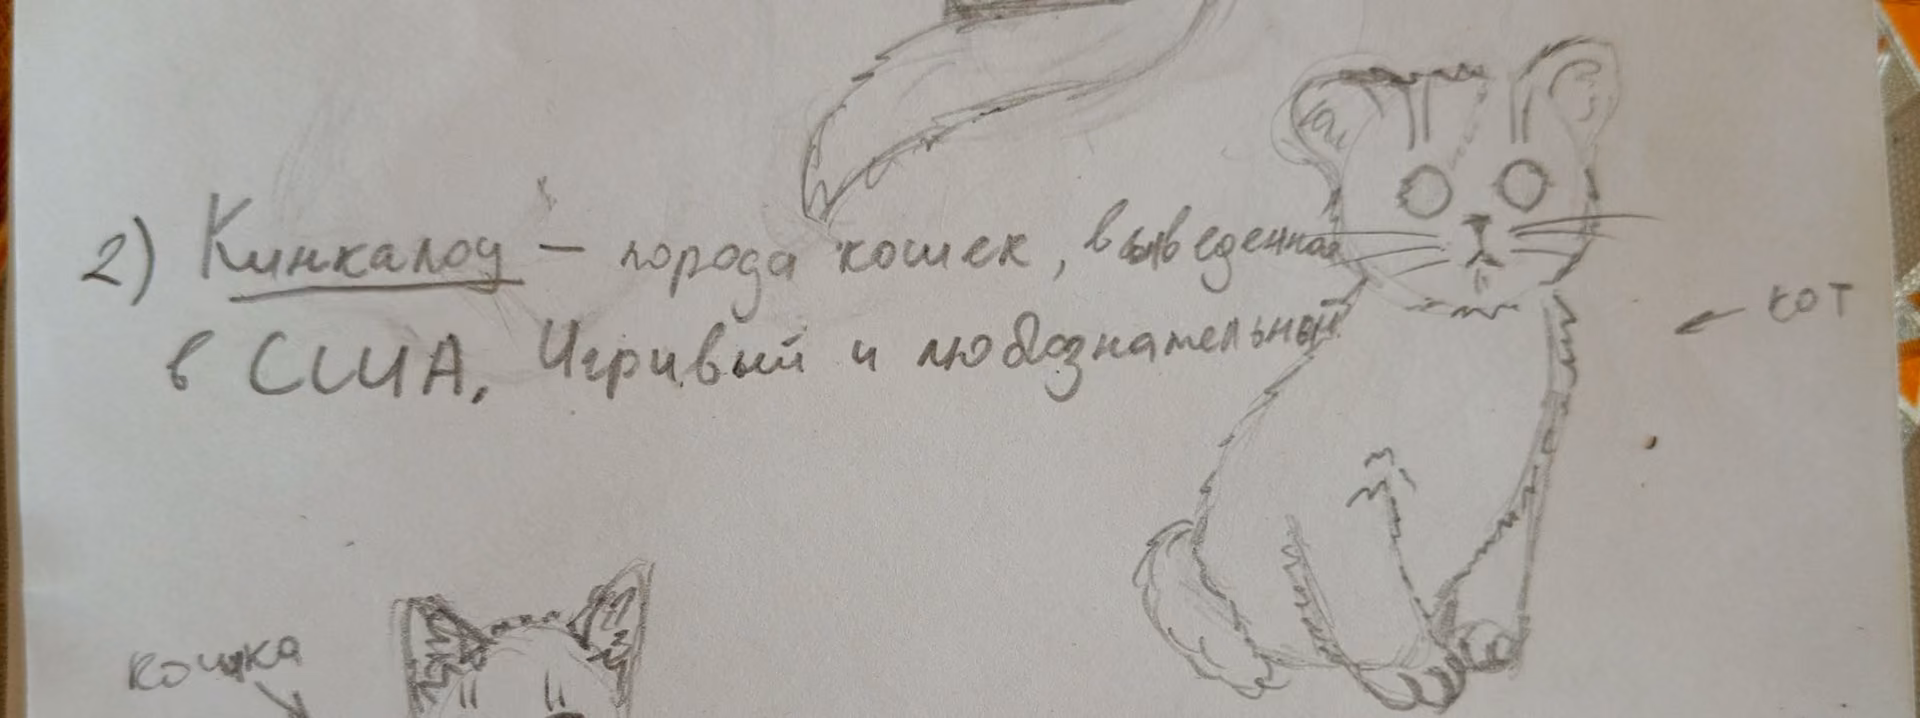 2) Кинкалоу – порода кошек, выведенная
в США. Игривый и любознательный
← кот
кошка